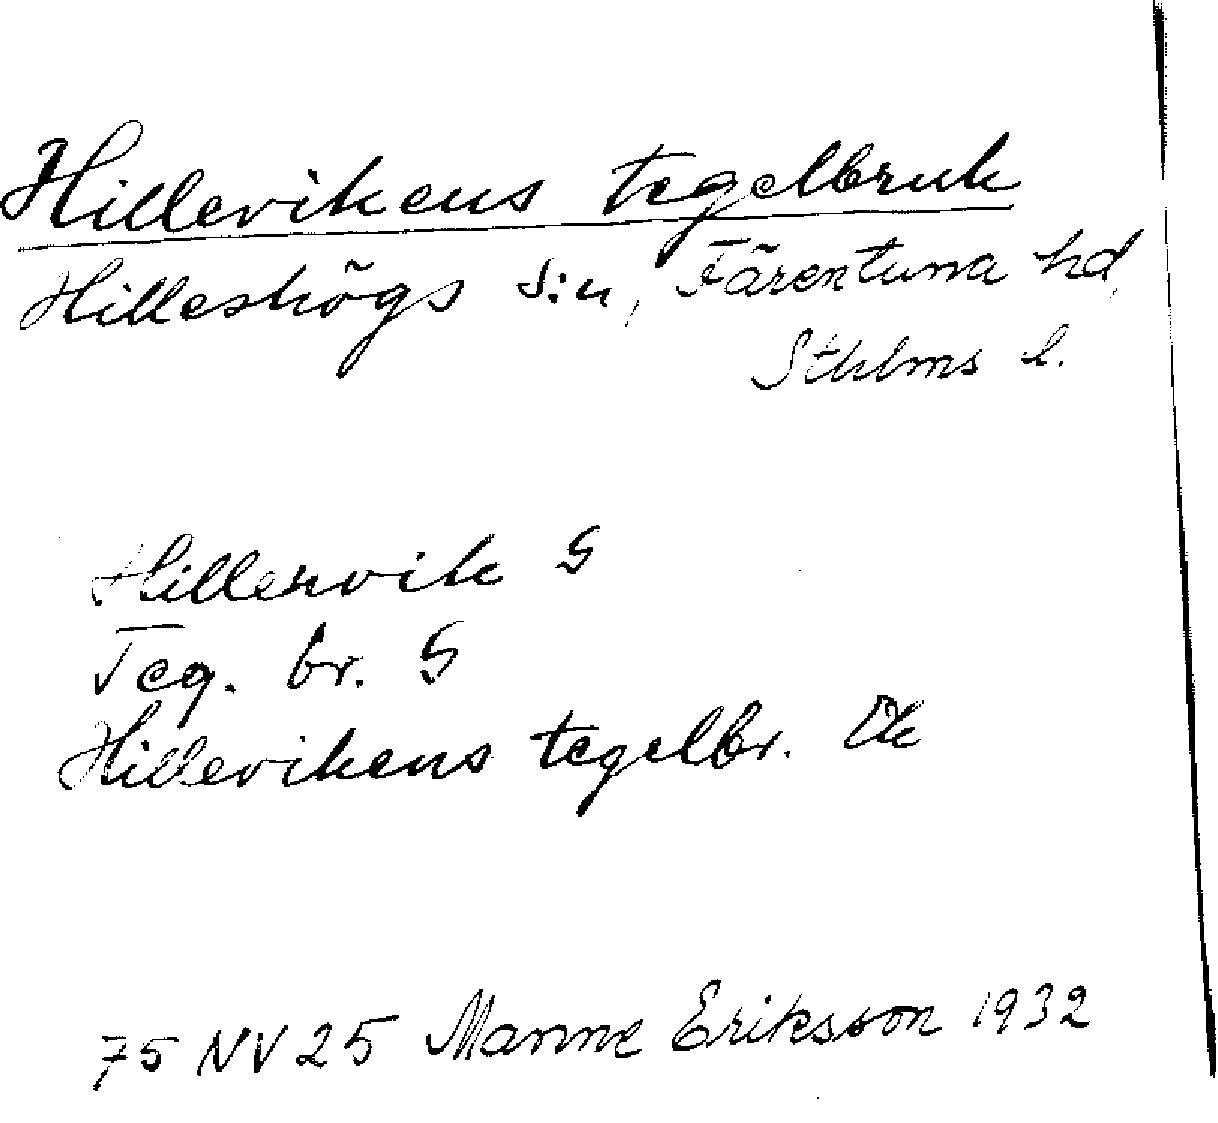 Hillevikens tegelbruk
Hilleshögs s:n, Färentuna hd,
Sthlms l.
Hillenvik G
Teg. br. G
Hillevikens tegelbr. Ek
75 NV 25 Manne Eriksson 1932